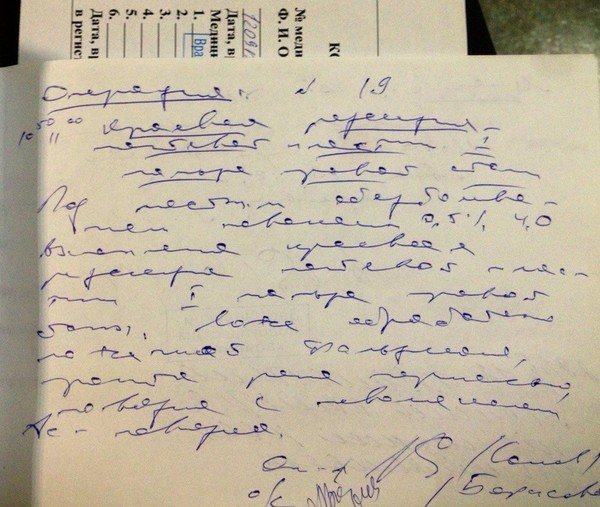 КО
№ меди
Ф. И. О
12091
Дата, в
Медици
1. Вра
2.
3.
4.
5.
6.
Дата, вр
в регист
Операция: № 19
10 50 11 00 краевая резекция
ногтевой пласти I
пальца правой стоп
Под местн обезболива-
нием новокаин 0,5% 4,0
выполнена краевая
резекция ногтевой плас-
тин I пальца правой
стопы. Ложе обработано
ложечкой Фолькмана,
повязка с левомеколем
Ас-повязка.
Оп-р